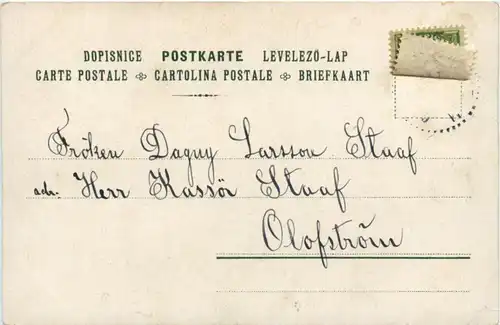 DOPISNICE POSTKARTE LEVELEZÖ-LAP
CARTE POSTALE CARTOLINA POSTALE BRIEFKAART
Fröken Dagny Larsson Staaf
adr. Herr Kassör Staaf
Olofström